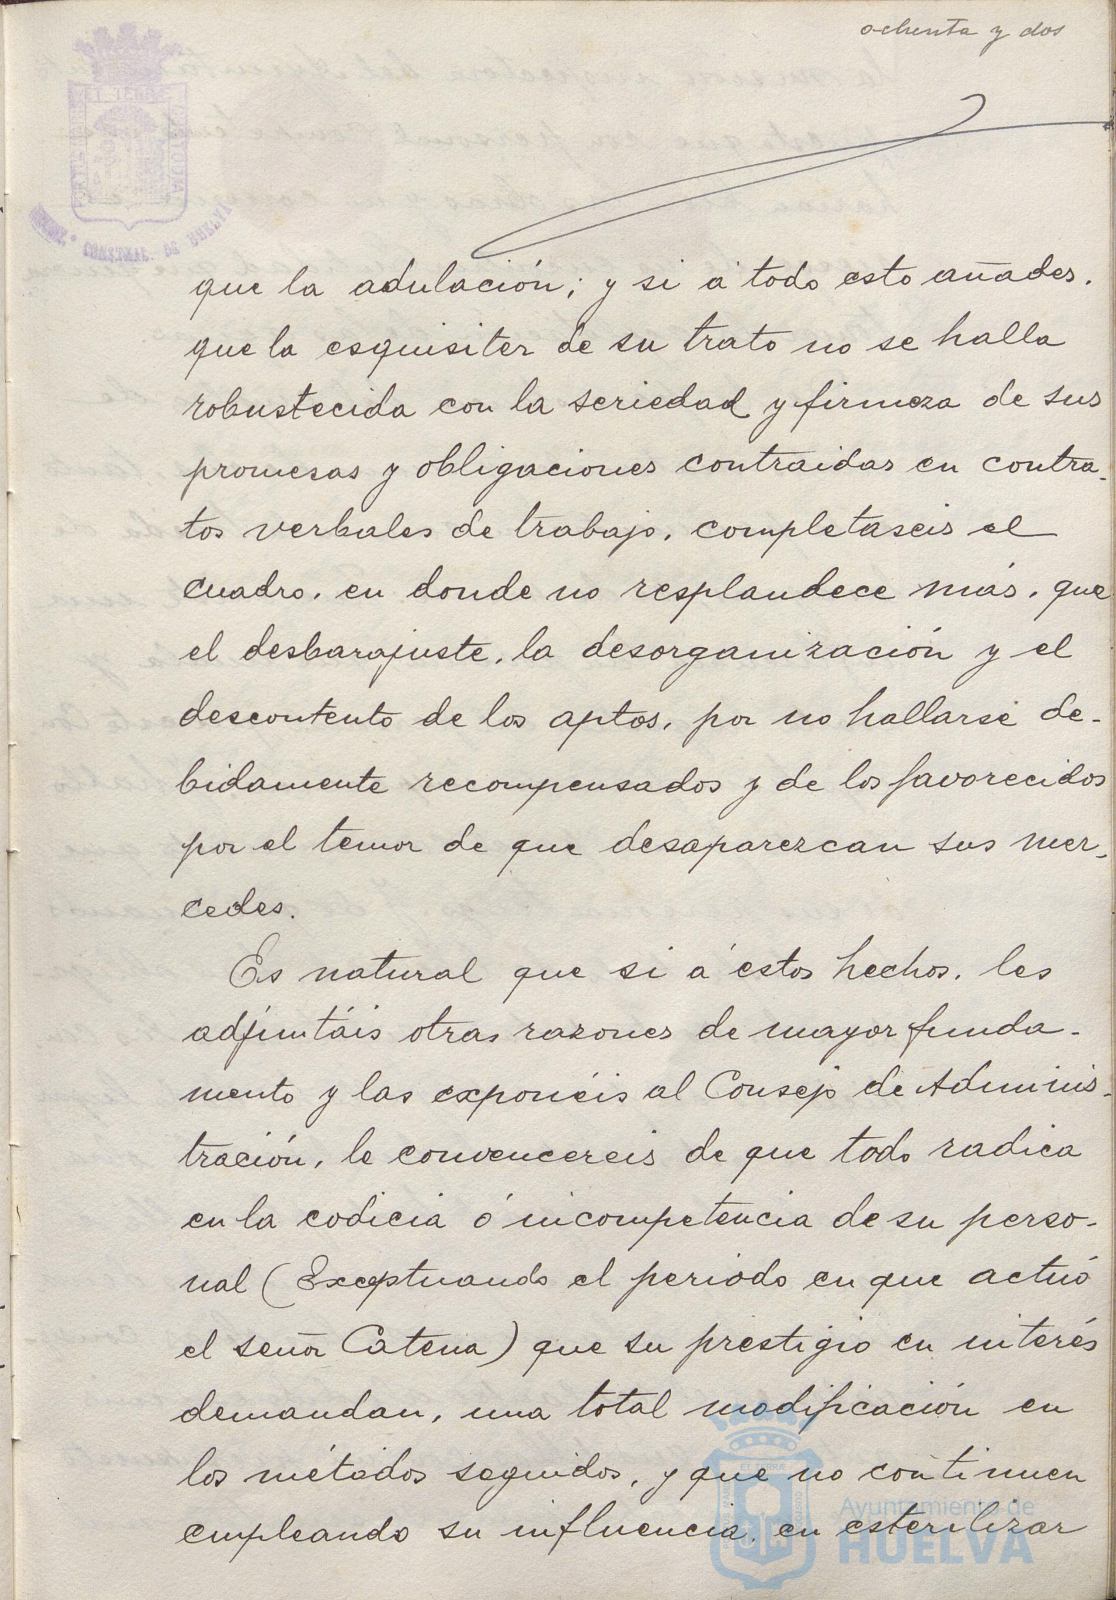 ochenta y dos
que la adulación; y si á todo esto añades,
que la esquisitez de su trato no se halla
robustecida con la seriedad y firmeza de sus
promesas y obligaciones contraidas en contra-
tos verbales de trabajo, completaseis el
cuadro, en donde no resplandece más, que
el desbarajuste, la desorganización y el
descontento de los aptos, por no hallarse de-
bidamente recompensados y de los favorecidos
por el temor de que desaparezcan sus mer-
cedes.
Es natural que si á estos hechos, les
adjuntáis otras razones de mayor funda-
mento y las exponéis al Consejo de Adminis-
tración, le convencereis de que todo radica
en la codicia ó incompetencia de su perso-
nal (Exceptuando el periodo en que actuó
el señor Catena) que su prestigio en interés
demandan, una total modificación en
los métodos seguidos, y que no continuen
empleando su influencia, en esterilizar
Ayuntamiento de
HUELVA